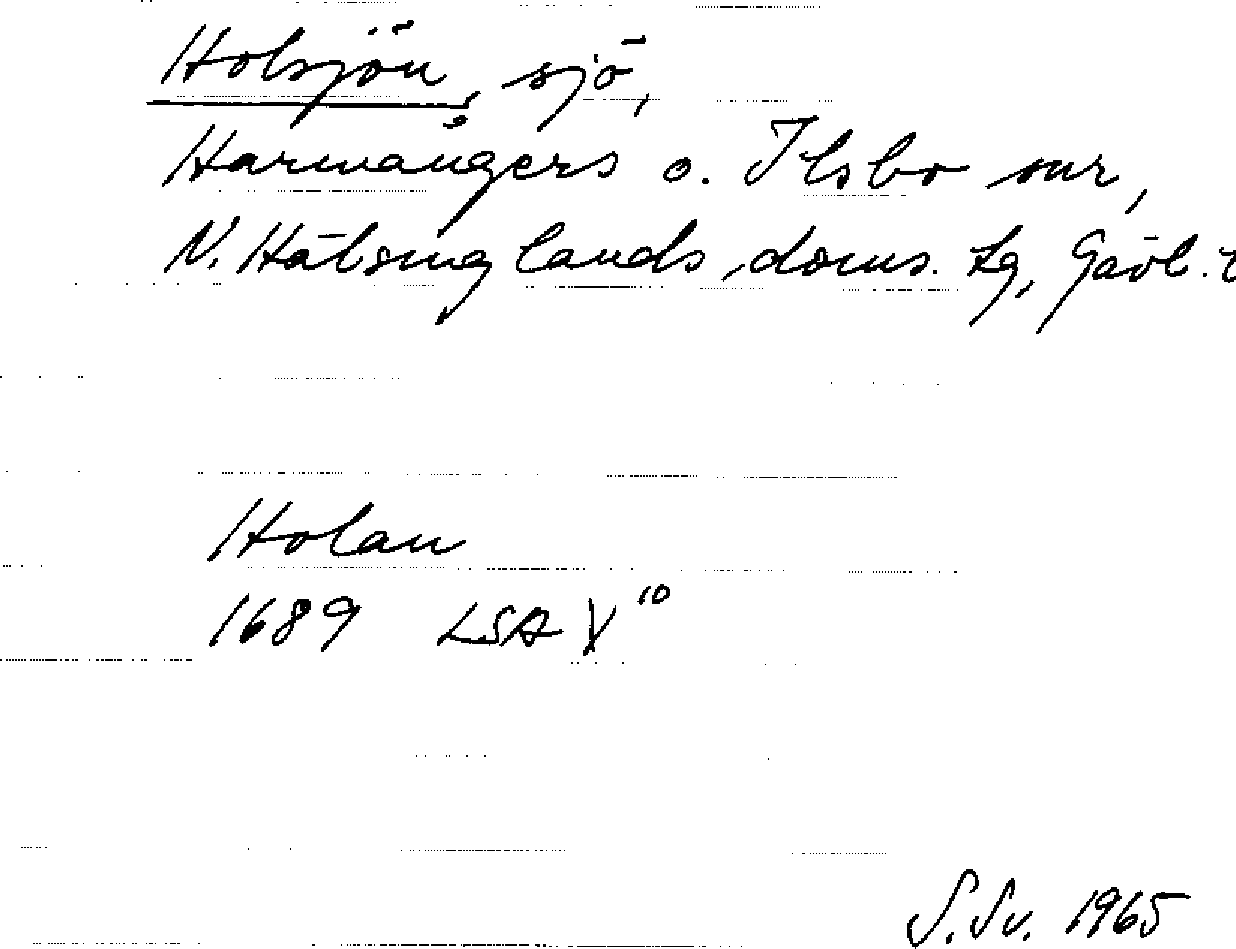 Holsjön, sjö,
Harmångers o. Ilsbo snr,
N. Hälsinglands doms. tg, Gävl.
Holan
1689 LSA X¹⁰
S. Sv. 1965